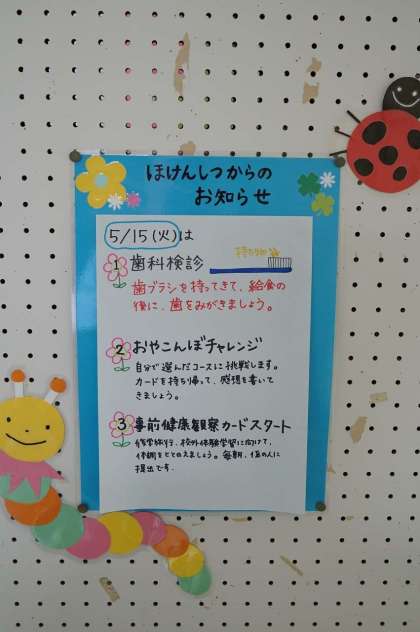 ほけんしつからの
お知らせ
5/15(火)は
1 歯科検診
持ちもの
歯ブラシを持ってきて、給食の
後に、歯をみがきましょう。
2 おやこんぼチャレンジ
自分で選んだコースに挑戦します。
カードを持ち帰って、感想を書いて
きましょう。
3 事前健康観察カードスタート
修学旅行、校外体験学習に向けて、
体調をととのえましょう。毎朝、係の人に
提出です.